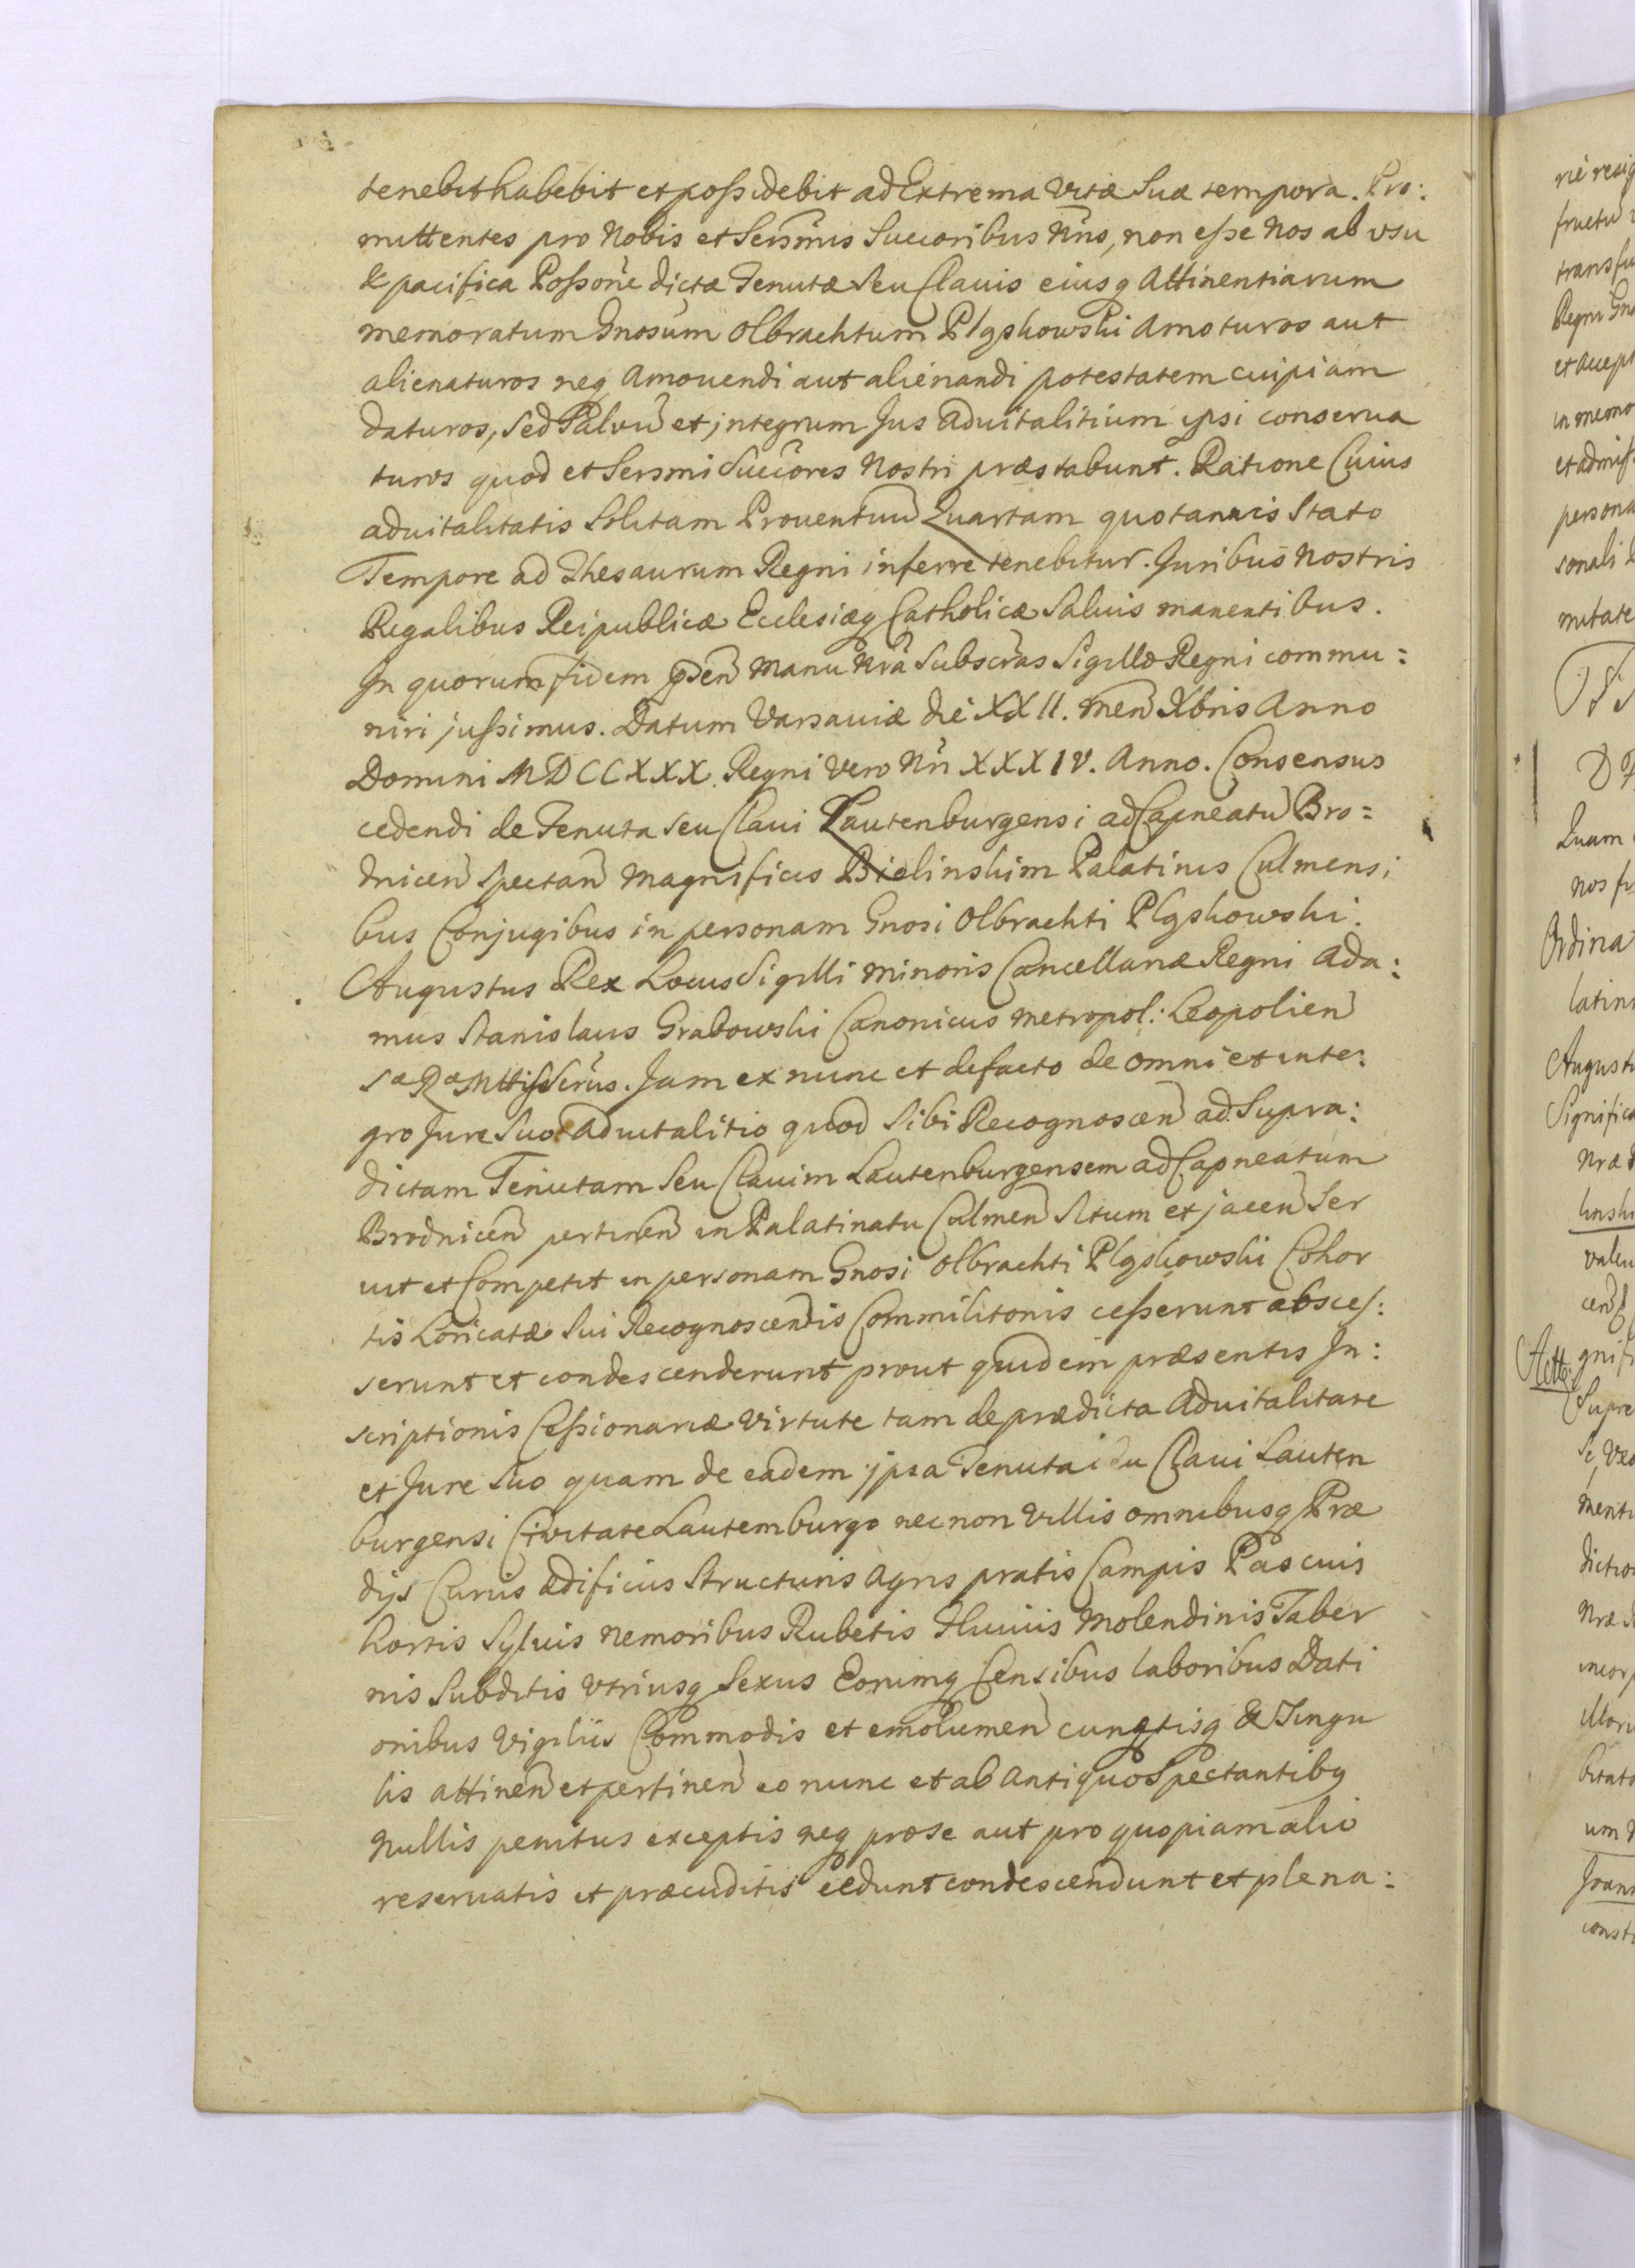 tenebit habebit et possidebit ad Extrema Vitæ Suæ tempora. Pro:
mittentes pro Nobis et Sersmis Succoribus Nris, non esse Nos ab usu
& pacifica Possone dictæ Tenutæ Seu Clavis eiusq Attinentiarum
memoratum Gnosum Olbrachtum Pląskowski Amoturos aut
alienaturos neq Amovendi aut alienandi potestatem cuipiam
daturos, Sed Salvū et integrum Jus Aduitalitium ipsi conserua
turos quod et Sersmi Succores Nostri præstabunt. Ratione Cuius
aduitalitatis Solitam Prouentuū Quartam quotannis Stato
Tempore ad Thesaurum Regni inferre tenebitur. Juribus Nostris
Regalibus Reipublicæ Ecclesiæq Catholicæ Saluis manentibus.
In quorum fidem pñden Manu Nrâ Subscras Sigillo Regni commu:
niri jussimus. Datum Varsauiæ die XXII. men Xbris Anno
Domini MDCCXXX. Regni Vero Nri XXXIV. Anno. Consensus
cedendi de Tenuta seu Claui Lautenburgensi ad Capneatū Bro=
dnicen Spectan Magnificis Bielinskim Palatinis Culmensi
bus Conjugibus in personam Gnosi Olbrachti Pląskowski.
Augustus Rex Locus Sigilli minoris Cancellariæ Regni Ada:
mus Stanislaus Grabowski Canonicus Metropol: Leopolien
S æ R æ Mttis Scrius. Jam ex nunc et defacto de omni et inte:
gro Jure Suo Aduitalitio quod Sibi Recognoscen ad Supra:
dictam Tenutam Seu Clauim Lautenburgensem ad Capneatum
Brodnicen pertinen in Palatinatu Culmen Situm et jacen Ser
uit et Competit in personam Gnosi Olbrachti Pląskowski Cohor
tis Loricatæ Sui Recognoscendis Commilitonis cesserunt absces:
serunt et condescenderunt prout quidem præsentis In:
scriptionis Cessionariæ Virtute tam de prædicta Aduitalitate
et Jure Suo quam de eadem ipsa Tenuta seu Claui Lauten
burgensi Civitate Lautemburgo necnon Villis omnibusq Præ
dijs Curiis ædificiis Structuris Agris pratis Campis Pascuis
hortis Syluis Nemoribus Rubetis Fluuiis Molendinis Taber
nis Subditis Vtriusq Sexus Eorumq Censibus laboribus Dati
onibus Vigiliis Commodis et emolumen cunctisq & Singu
lis attinen et pertinen eo nunc et ab Antiquo Spectantibq
Nullis penitus exceptis neq pro se aut pro quopiam alio
reseruatis et præcuditis cedunt condescendunt et plena: